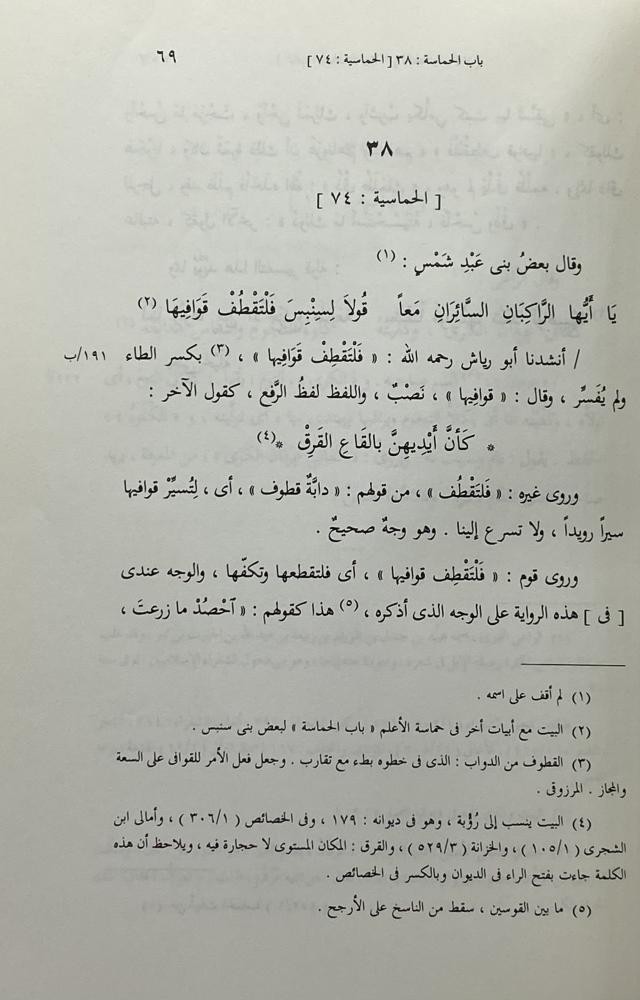 باب الحماسة : ٣٨ [ الحماسية : ٧٤ ] ٦٩
٣٨
[ الحماسية : ٧٤ ]
وقال بعضُ بنى عَبْدِ شَمْسٍ : (١)
يَا أَيُّها الرَّاكِبَانِ السَّائِرَانِ مَعاً قُولاَ لِسِنْبِسَ فَلْتَقْطُفْ قَوَافِيهَا (٢)
/ أنشدنا أبو رياش رحمه الله : « فَلْتَقْطِفْ قَوَافِيها » ، (٣) بكسر الطاء ١٩١/ب
ولم يُفَسِّر ، وقال : « قوافِيها » ، نَصْبٌ ، واللفظ لفظُ الرَّفع ، كقول الآخر :
* كَأنَّ أَيْدِيهِنَّ بالقَاعِ القَرِقْ * (٤)
وروى غيره : « فَلتَقْطُف » ، من قولهم : « دابَّةٌ قطوف » ، أى ، لِتُسيِّرْ قوافيها
سيراً رويداً ، ولا تسرع إلينا . وهو وجهٌ صحيحٌ .
وروى قوم : « فَلْتَقْطِف قوافيها » ، أى فلتقطعها وتكفّها ، والوجه عندى
[ فى ] هذه الرواية على الوجه الذى أذكره ، (٥) هذا كقولهم : « ٱحْصُدْ ما زرعتَ ،
(١) لم أقف على اسمه .
(٢) البيت مع أبيات أخر فى حماسة الأعلم « باب الحماسة » لبعض بنى سنبس .
(٣) القطوف من الدواب : الذى فى خطوه بطء مع تقارب . وجعل فعل الأمر للقوافى على السعة
والمجاز . المرزوقى .
(٤) البيت ينسب إلى رُؤْبة ، وهو فى ديوانه : ١٧٩ ، وفى الخصائص ( ٣٠٦/١ ) ، وأمالى ابن
الشجرى ( ١٠٥/١ ) ، والخزانة ( ٥٢٩/٣ ) ، والقرق : المكان المستوى لا حجارة فيه ، ويلاحظ أن هذه
الكلمة جاءت بفتح الراء فى الديوان وبالكسر فى الخصائص .
(٥) ما بين القوسين ، سقط من الناسخ على الأرجح .